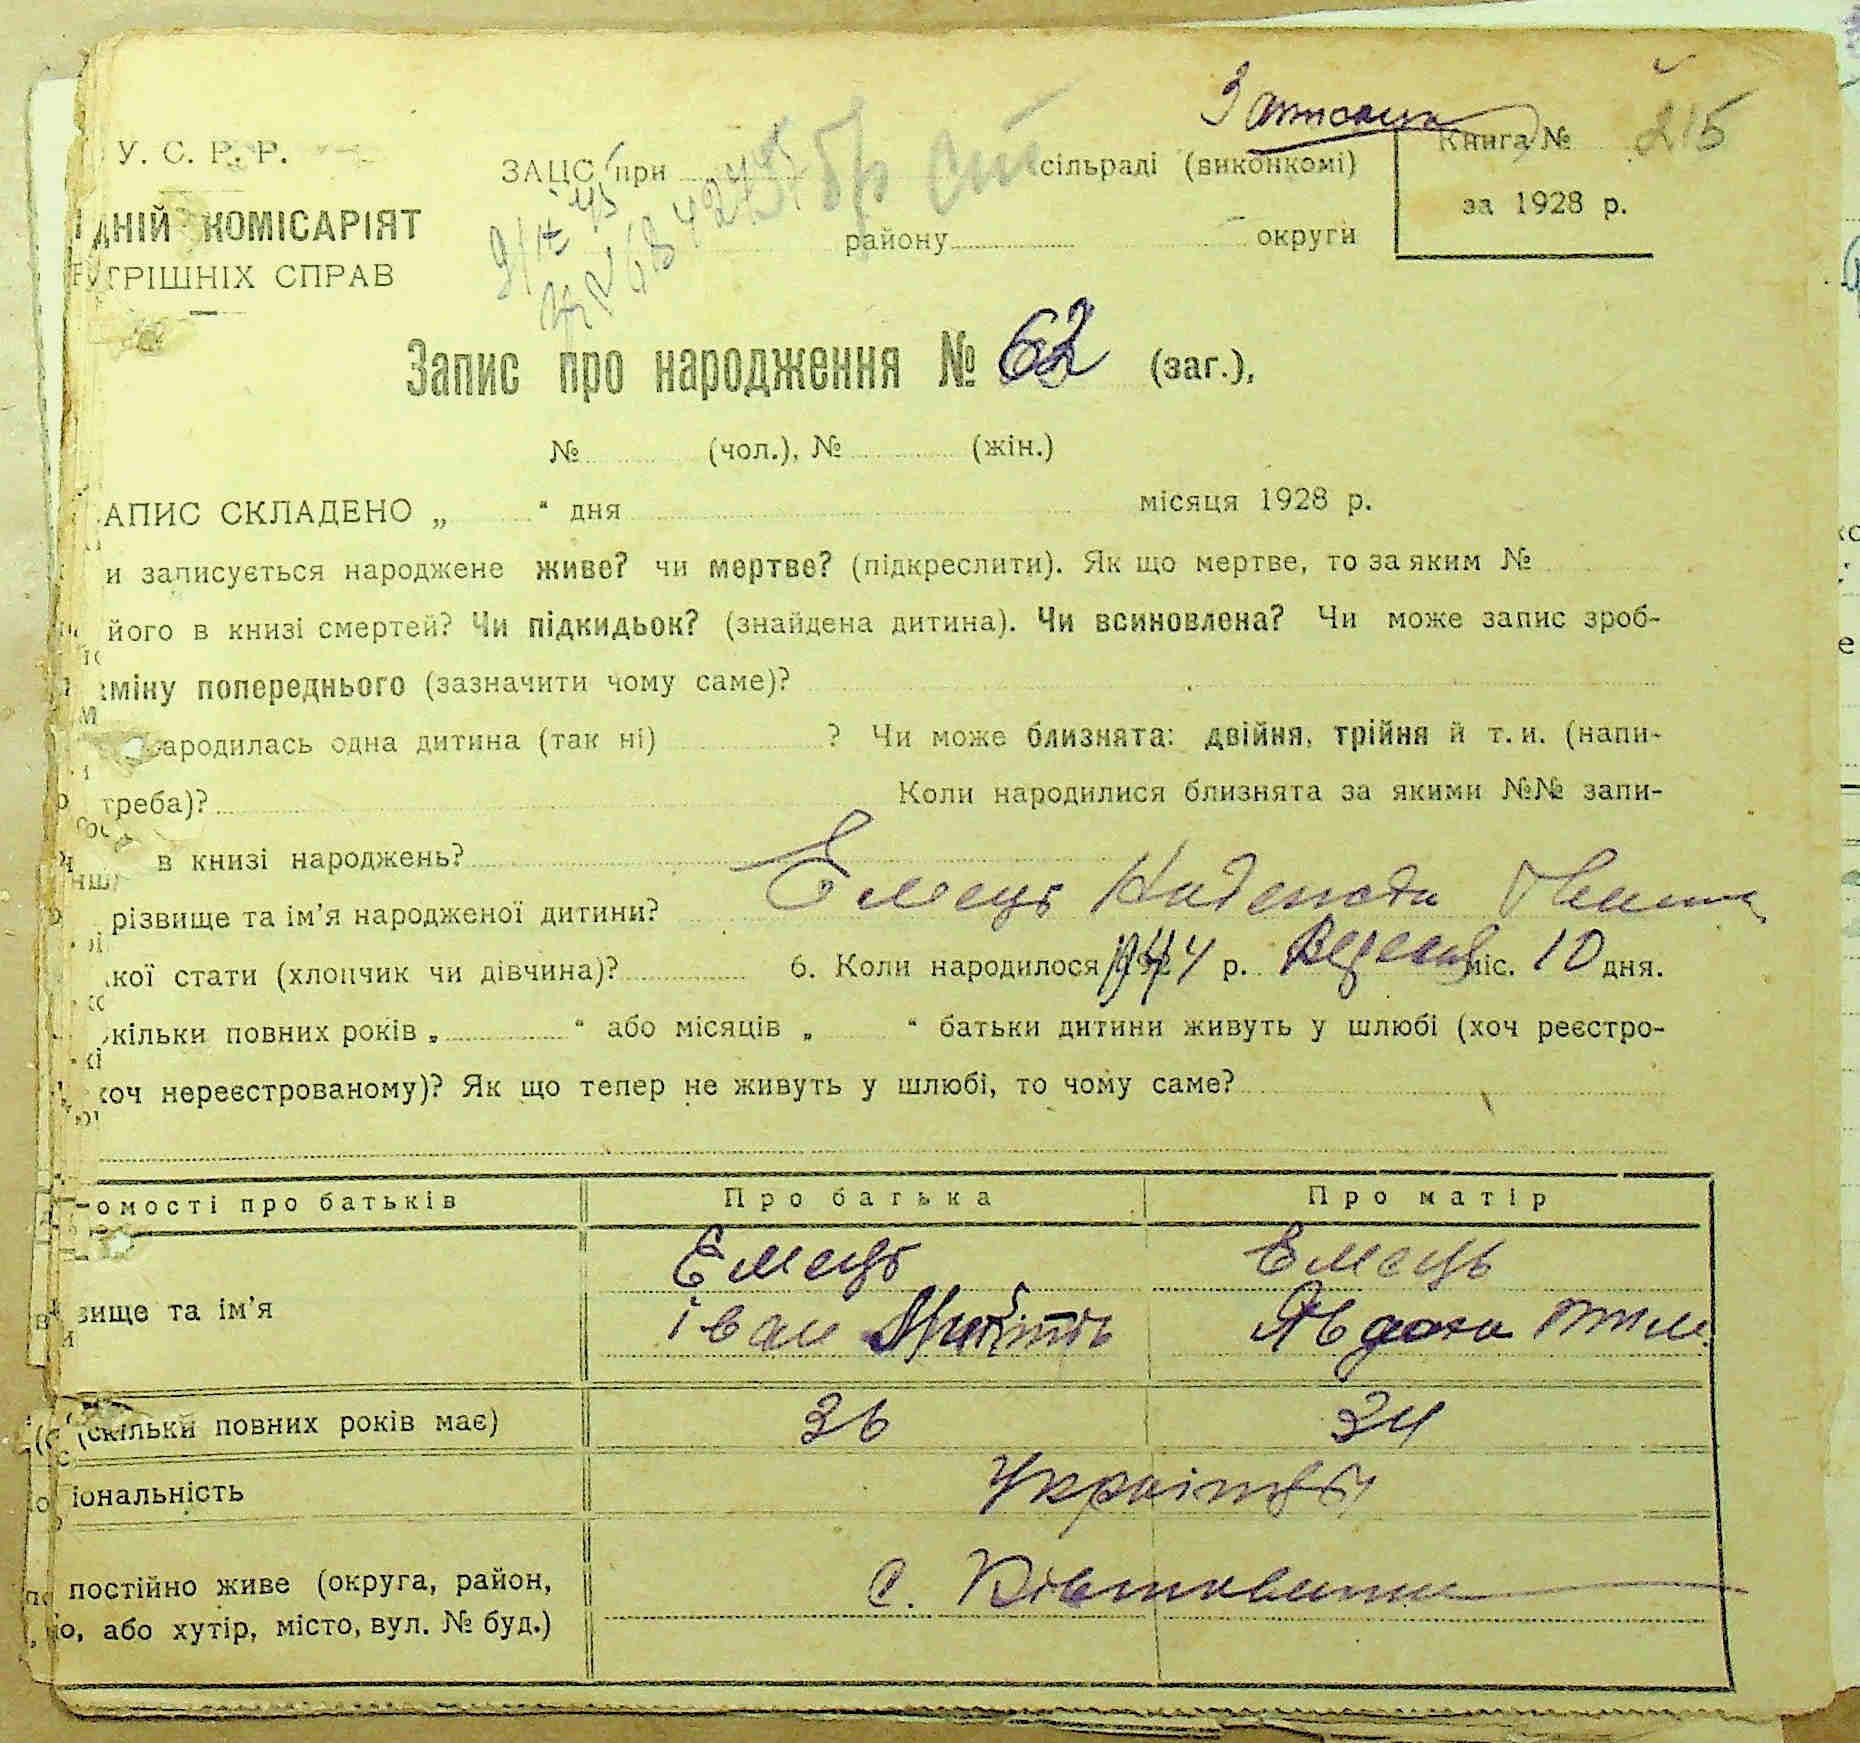 Записано
У. С. Р. Р.
ЗАЦС при сільраді (виконкомі)
Книга № 215
за 1928 р.
ДНІЙ КОМІСАРІЯТ
району округи
ТРІШНІХ СПРАВ
Запис про народження № 62 (заг.),
№ (чол.), № (жін.)
АПИС СКЛАДЕНО „ “ дня місяця 1928 р.
и записується народжене живе? чи мертве? (підкреслити). Як що мертве, то за яким №
його в книзі смертей? Чи підкидьок? (знайдена дитина). Чи всиновлена? Чи може запис зроб-
аміну попереднього (зазначити чому саме)?
ародилась одна дитина (так ні) ? Чи може близнята: двійня, трійня й т. и. (напи-
треба)? Коли народилися близнята за якими №№ запи-
в книзі народжень?
різвище та ім’я народженої дитини? Емець Надежда Ивановна
кої стати (хлопчик чи дівчина)? 6. Коли народилося 1944 р. Вересня міс. 10 дня.
кільки повних років „ “ або місяців „ “ батьки дитини живуть у шлюбі (хоч реєстро-
хоч нереєстрованому)? Як що тепер не живуть у шлюбі, то чому саме?
омості про батьків Про батька Про матір
Емець Емець
вище та ім’я Іван Явдоха
(скільки повних років має) 36 34
іональність Українці
постійно живе (округа, район, с.
о, або хутір, місто, вул. № буд.)